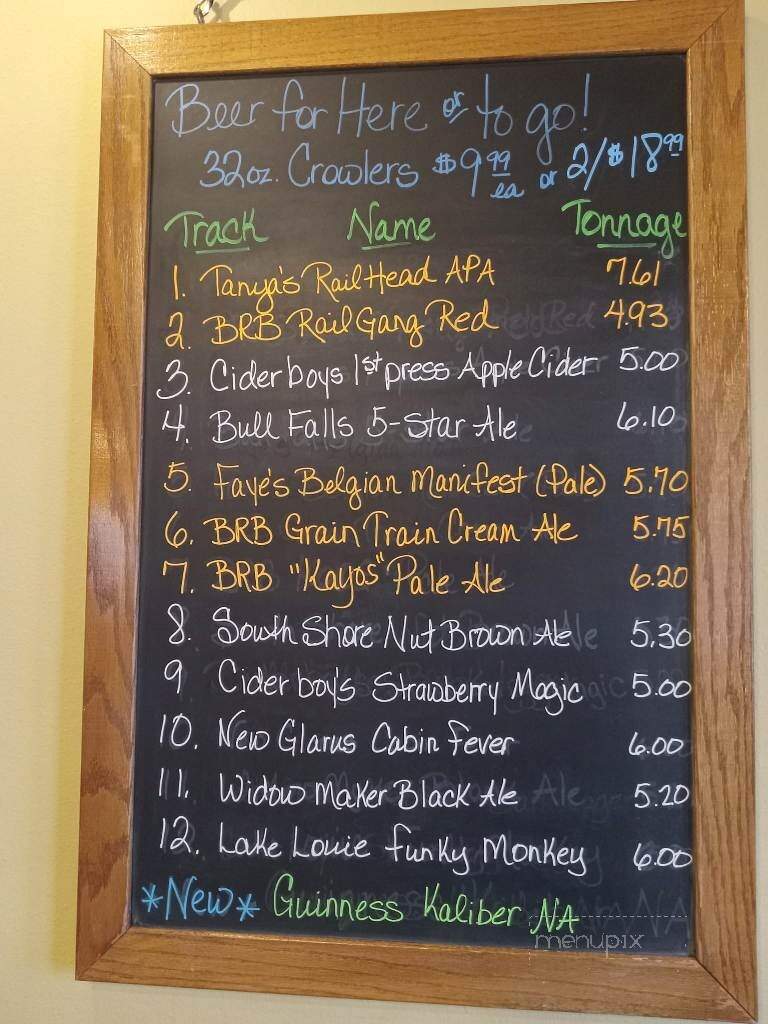 Beer for Here or to go!
32oz. Crowlers $9.99 ea or 2/$18.99
Track Name Tonnage
1. Tanya's RailHead APA 7.61
2. BRB Rail Gang Red 4.93
3. Ciderboys 1st press Apple Cider 5.00
4. Bull Falls 5-Star Ale 6.10
5. Faye's Belgian Manifest (Pale) 5.70
6. BRB Grain Train Cream Ale 5.75
7. BRB "Kayos" Pale Ale 6.20
8. South Shore Nut Brown Ale 5.30
9 Ciderboy's Strawberry Magic 5.00
10. New Glarus Cabin Fever 6.00
11. Widow Maker Black Ale 5.20
12. Lake Louie Funky Monkey 6.00
*New* Guinness Kaliber NA
menupix